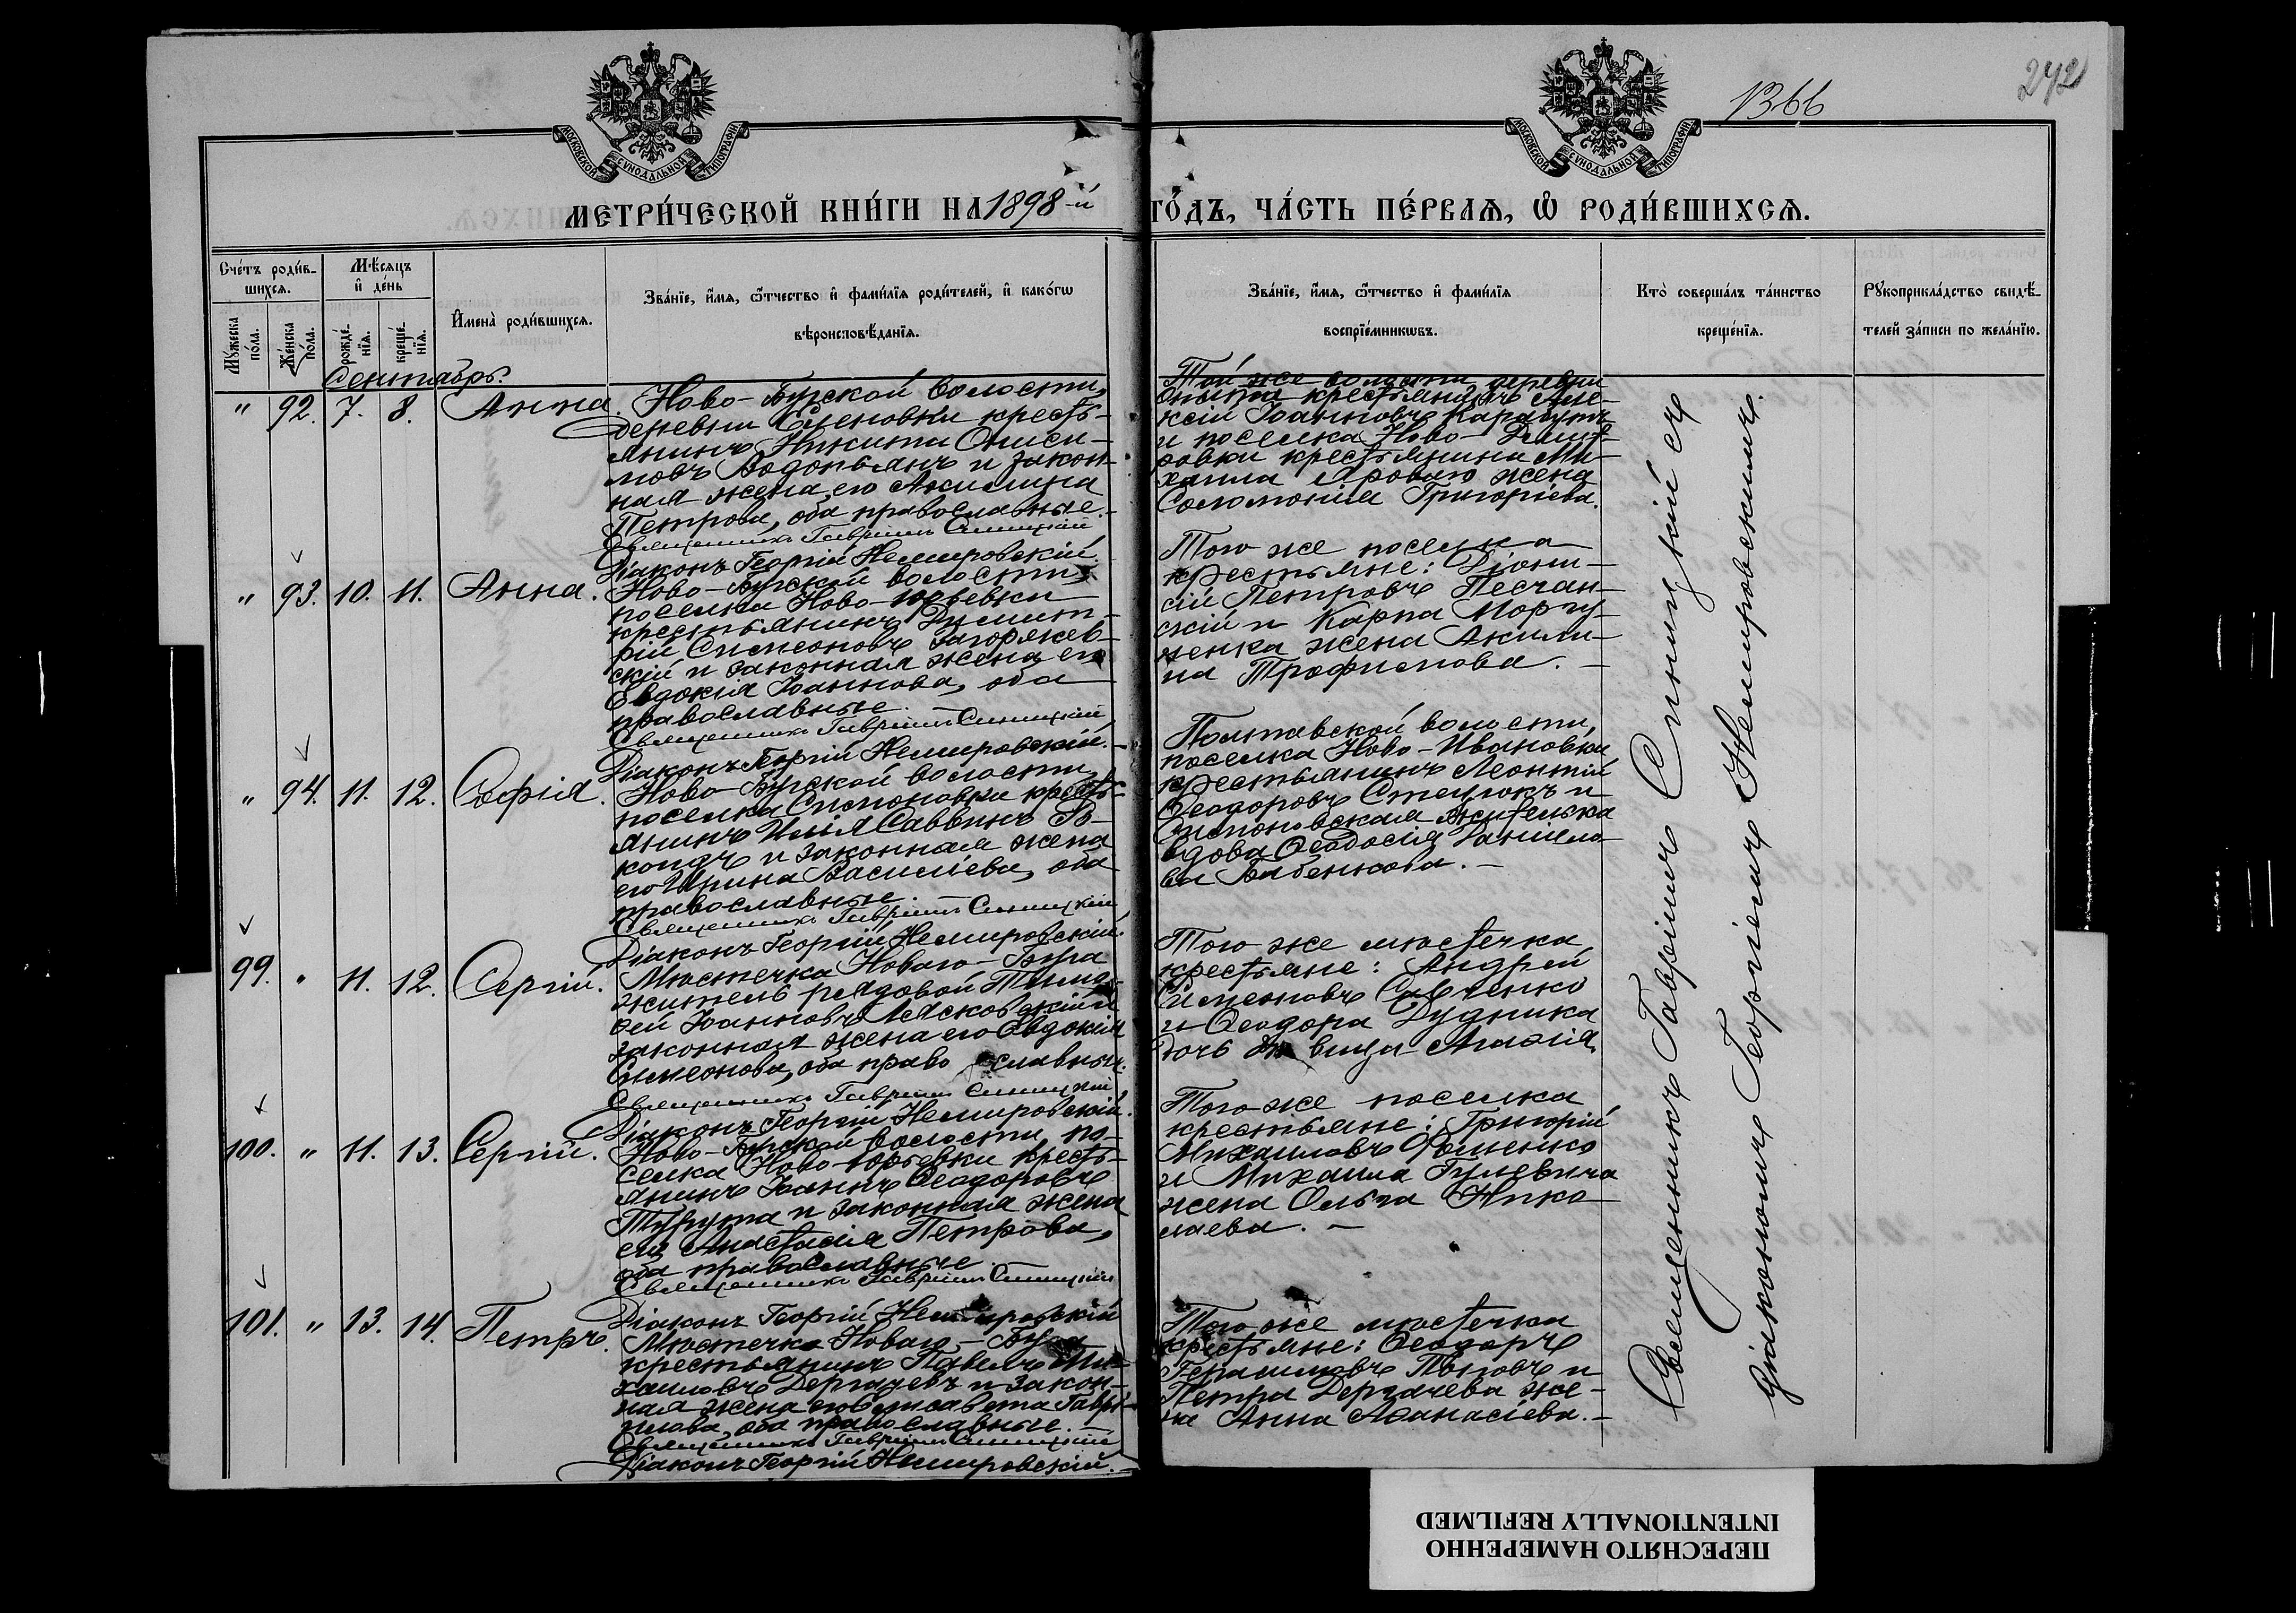 МОСКОВСКОЙ СѴНОДАЛЬНОЙ ТИПОГРАФІИ
МОСКОВСКОЙ СѴНОДАЛЬНОЙ ТИПОГРАФІИ
1366
242
МЕТРИ́ЧЕСКОЙ КНИ́ГИ НА 1898-й
ГО́ДЪ, ЧА́СТЬ ПЕ́РВАЯ, Ѽ РОДИ́ВШИХСЯ.
Сче́тъ роди́в-
шихся.
Мꙋ́жеска
по́ла.
Же́нска
по́ла.
Мѣ́сяцъ
и҆ де́нь
рожде́-
нїя.
креще́-
нїя.
И҆мена̀ роди́вшихся.
Зва́нїе, и҆́мя, ѻ҆́тчество и҆ фами́лїя роди́телей, и҆ како́гѡ
вѣроисповѣ́данїя.
Зва́нїе, и҆́мя, ѻ҆́тчество и҆ фами́лїя
воспрїе́мникѡвъ.
Кто̀ соверша́лъ та́инство
креще́нїя.
Рꙋкоприкла́дство свидѣ́-
телей за́писи по жела́нїю.
Сентябрь.
" 92. 7. 8. Анна.
Ново-Бугской волости,
деревни Еленовки кресть-
янинъ Никита Ониси-
мовъ Водопьянъ и закон-
ная жена его Акилина
Петрова, оба православные.
Священникъ Гавріилъ Синицкій
Діаконъ Георгій Немировскій
Той же волости деревни
крестьянинъ Але-
ксій Іоанновъ Карабутъ
и поселка Ново-Димит-
ровки крестьянина Ми-
хаила жена
Соломонія Григоріева.
" 93. 10. 11. Анна.
Ново-Бугской волости
поселка Ново-Юрьевки
крестьянинъ Димит-
рій Симеоновъ Загоржев-
скій и законная жена его
Евдокія Іоаннова, оба
православные.
Священникъ Гавріилъ Синицкій
Діаконъ Георгій Немировскій.
Того же поселка
крестьяне: Діони-
сій Петровъ Песчан-
скій и Карпа Моргу-
ненка жена Акили-
на Трофимова.
" 94. 11. 12. Софія.
Ново-Бугской волости,
поселка Симоновки кресть-
янинъ Илія Саввинъ Ко-
и законная жена
его Ирина Васильева, оба
православные.
Священникъ Гавріилъ Синицкій
Діаконъ Георгій Немировскій.
Полтавской волости,
поселка Ново-Ивановки
крестьянинъ Леонтій
Ѳеодоровъ Стецюкъ и
Симоновская жителька
вдова Ѳеодосія Даніило-
ва Бабенкова.
99. " 11. 12. Сергій.
Мѣстечка Новаго-Буга
житель рядовой Тимо-
ѳей Іоанновъ Лясковскій и
законная жена его Евдокія
Симеонова, оба православные.
Священникъ Гавріилъ Синицкій
Діаконъ Георгій Немировскій.
Того же мѣстечка
крестьяне: Андрей
Симеоновъ Савченко
и Ѳеодора Дудника
дочь дѣвица Агаѳія
100. " 11. 13. Сергій.
Ново-Бугской волости, по-
селка Ново-Юрьевки кресть-
янинъ Іоаннъ Ѳеодоровъ
и законная жена
его Анастасія Петрова,
оба православные
Священникъ Гавріилъ Синицкій
Діаконъ Георгій Немировскій
Того же поселка
крестьяне: Григорій
Михаиловъ Фоменко
и Михаила Гулевича
жена Ольга Нико-
лаева.
101. " 13. 14. Петръ.
Мѣстечка Новаго-Буга
крестьянинъ Павелъ Ми-
хаиловъ Дергачевъ и закон-
ная жена его Елисавета Гаврі-
илова, оба православные.
Священникъ Гавріилъ Синицкій
Діаконъ Георгій Немировскій.
Того же мѣстечка
крестьяне: Ѳеодоръ
Герасимовъ Поповъ и
Петра Дергачева же-
на Анна Аѳанасіева.
Священникъ Гавріилъ Синицкій съ
діакономъ Георгіемъ Немировскимъ.
ПЕРЕСНЯТО НАМЕРЕННО
INTENTIONALLY REFILMED